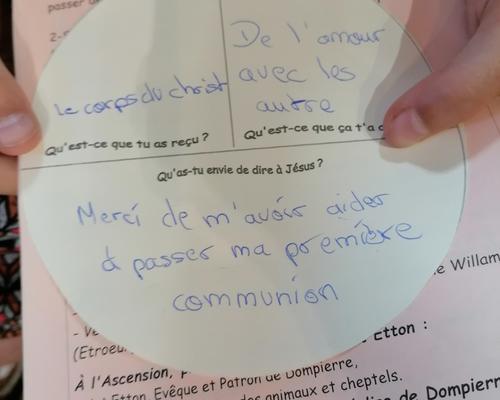 passer
2-
De l'amour
avec les
autre
Le corps du christ
Qu'est-ce que tu as reçu ?
Qu'est-ce que ça t'a
Qu'as-tu envie de dire à Jésus ?
Merci de m'avoir aider
à passer ma première
communion
e Willam
- Ve
Etton :
(Etroeu
À l'Ascension,
Etton, Evêque et Patron de Dompierre,
des animaux et cheptels.
de Dompierr